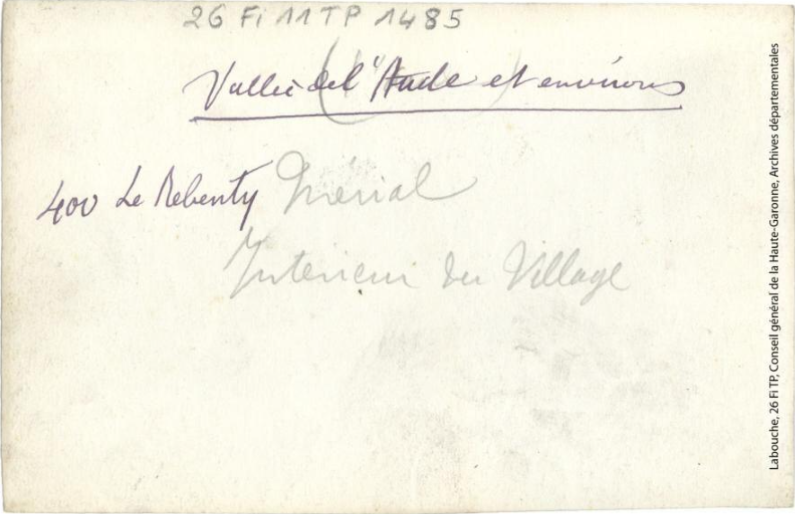 26 Fi 11 TP 1485
Vallée de l'Aude et environs
400 Le Rebenty Mérial
Intérieur du Village
Labouche, 26 Fi TP, Conseil général de la Haute-Garonne, Archives départementales